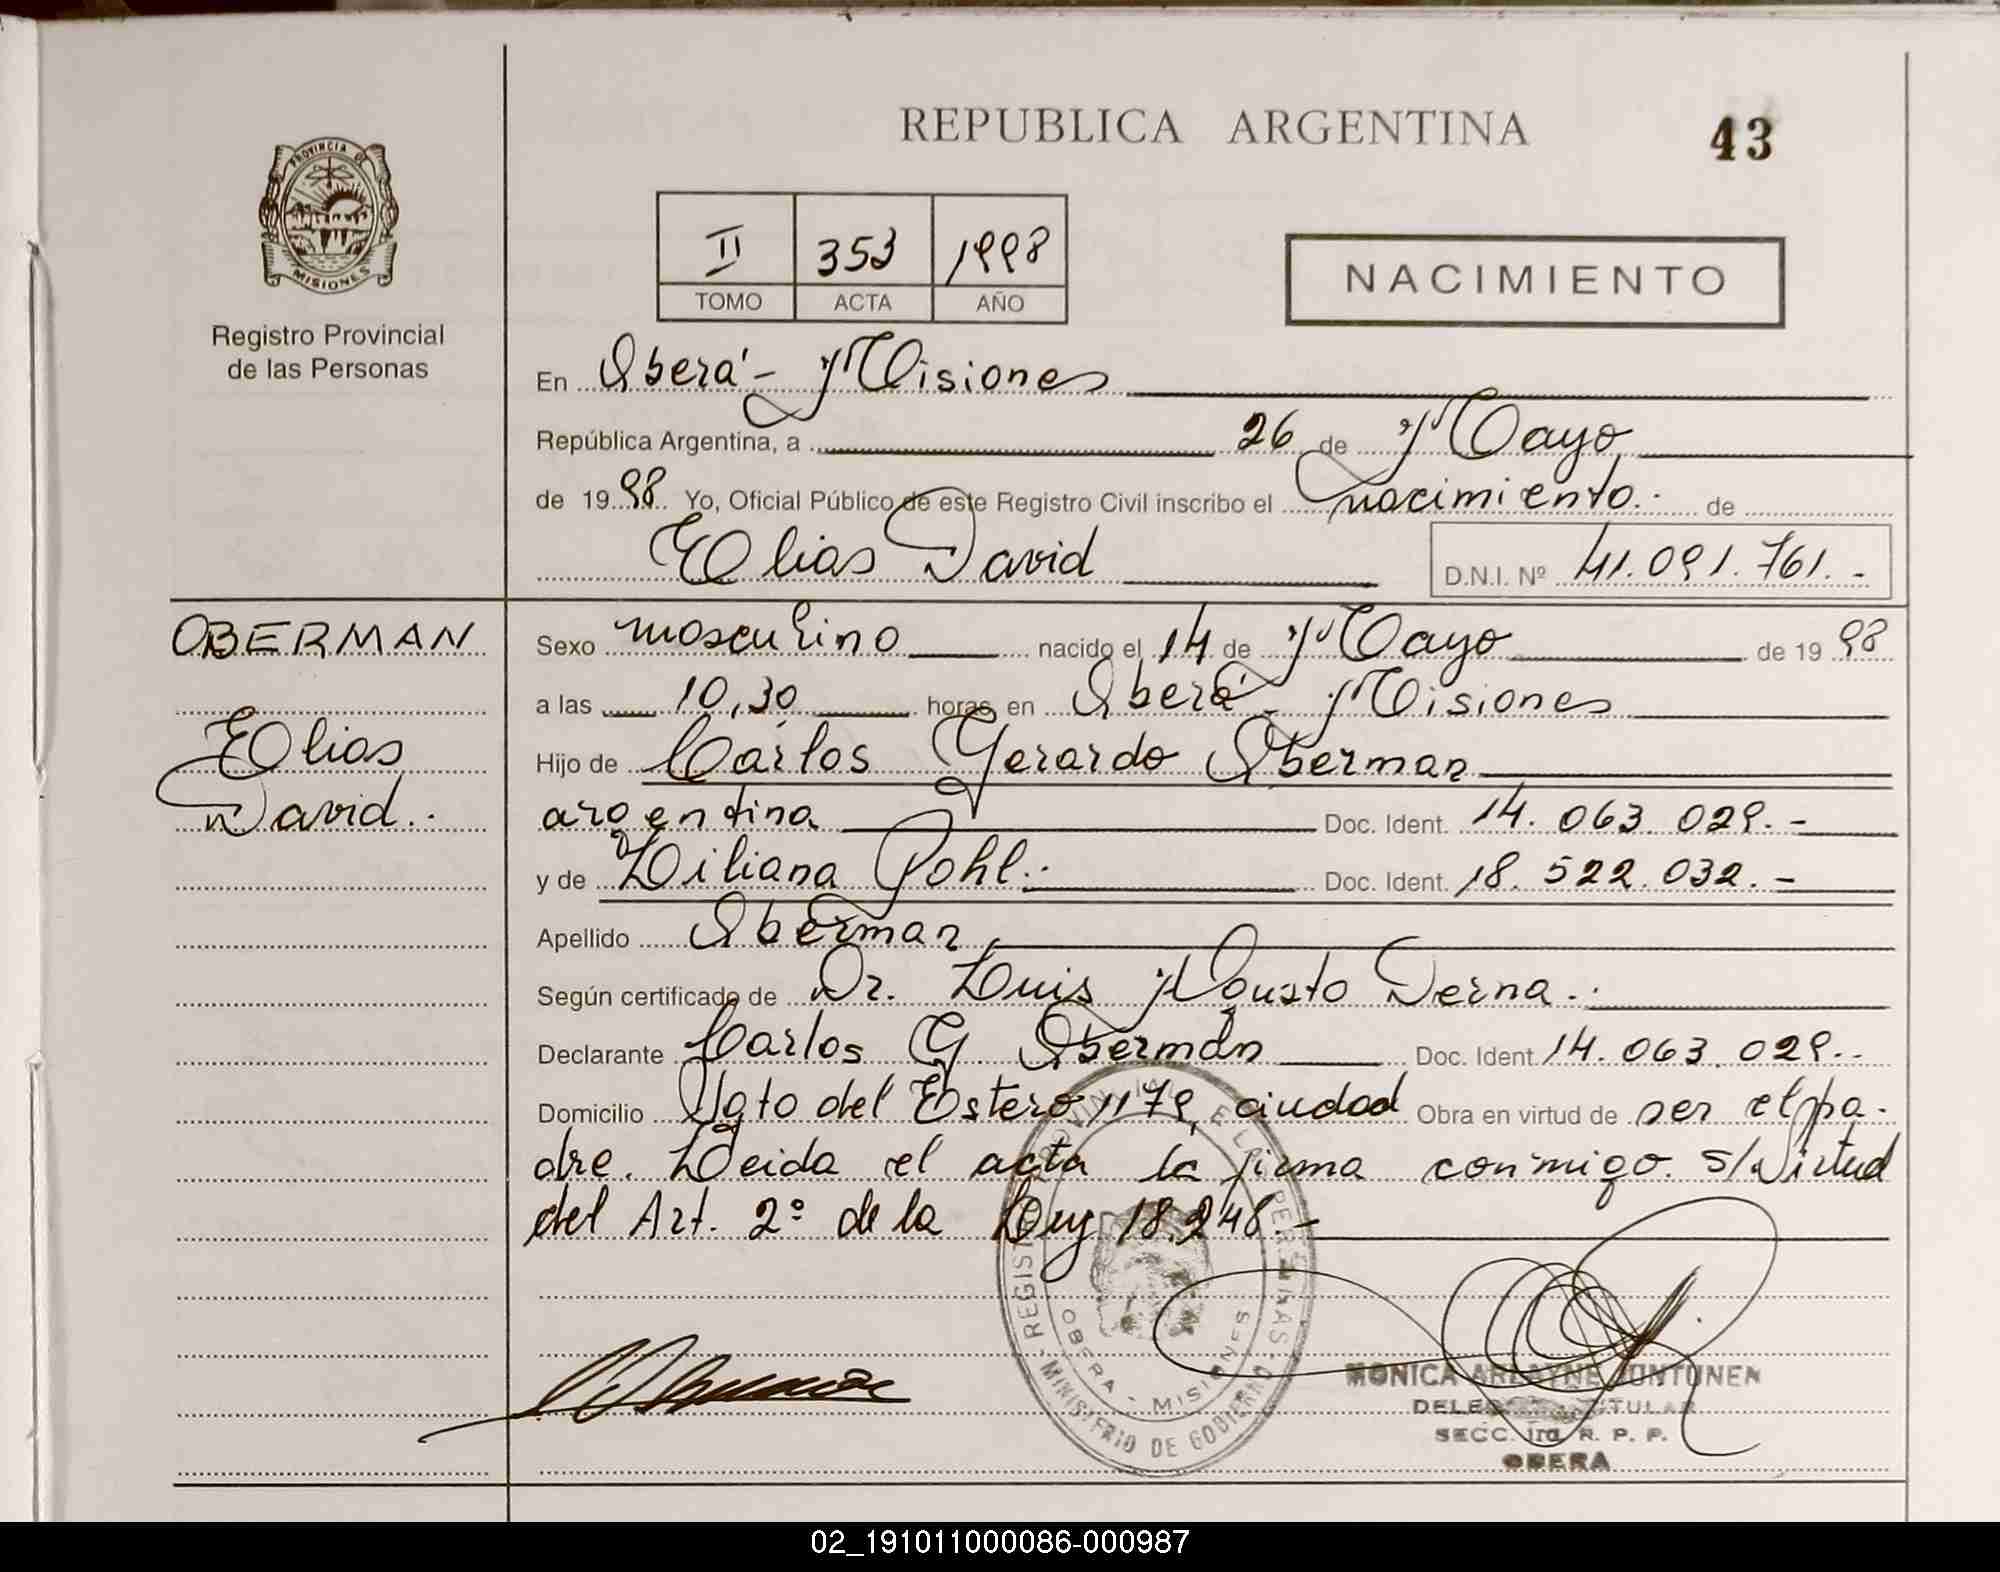 REPUBLICA ARGENTINA
43
PROVINCIA DE
MISIONES
Registro Provincial
de las Personas
II 353 1998
TOMO ACTA AÑO
NACIMIENTO
En Oberá - Misiones
República Argentina, a 26 de Mayo
de 1998 Yo, Oficial Público de este Registro Civil inscribo el nacimiento.- de
Elias David
D.N.I. Nº 41.091.761.-
OBERMAN
Elias
David.-
Sexo masculino nacido el 14 de Mayo de 1998
a las 10,30 horas, en Oberá - Misiones
Hijo de Carlos Gerardo Oberman
argentina Doc. Ident. 14.063.029.-
y de Liliana Pohl.- Doc. Ident. 18.522.032.-
Apellido Oberman
Según certificado de Dr. Luis Fausto Derna.-
Declarante Carlos G. Oberman Doc. Ident. 14.063.029.-
Domicilio Sgto del Estero 1179, ciudad Obra en virtud de ser el pa-
dre. Leida el acta la firma conmigo. s/Virtud
del Art. 2º de la Ley 18.248.-
OBERA - MISIONES
MINISTERIO DE GOBIERNO
MONICA ARLAYNE JUNTUNEN
TITULAR
SECC. 1ra. R. P. P.
OBERA
02_191011000086-000987